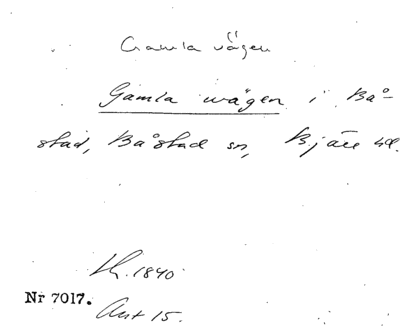 Gamla vägen
Gamla wägen i Bå-
stad, Båstad sn, Bjäre hd.
Lh. 1840
Nr 7017.
Akt 15.